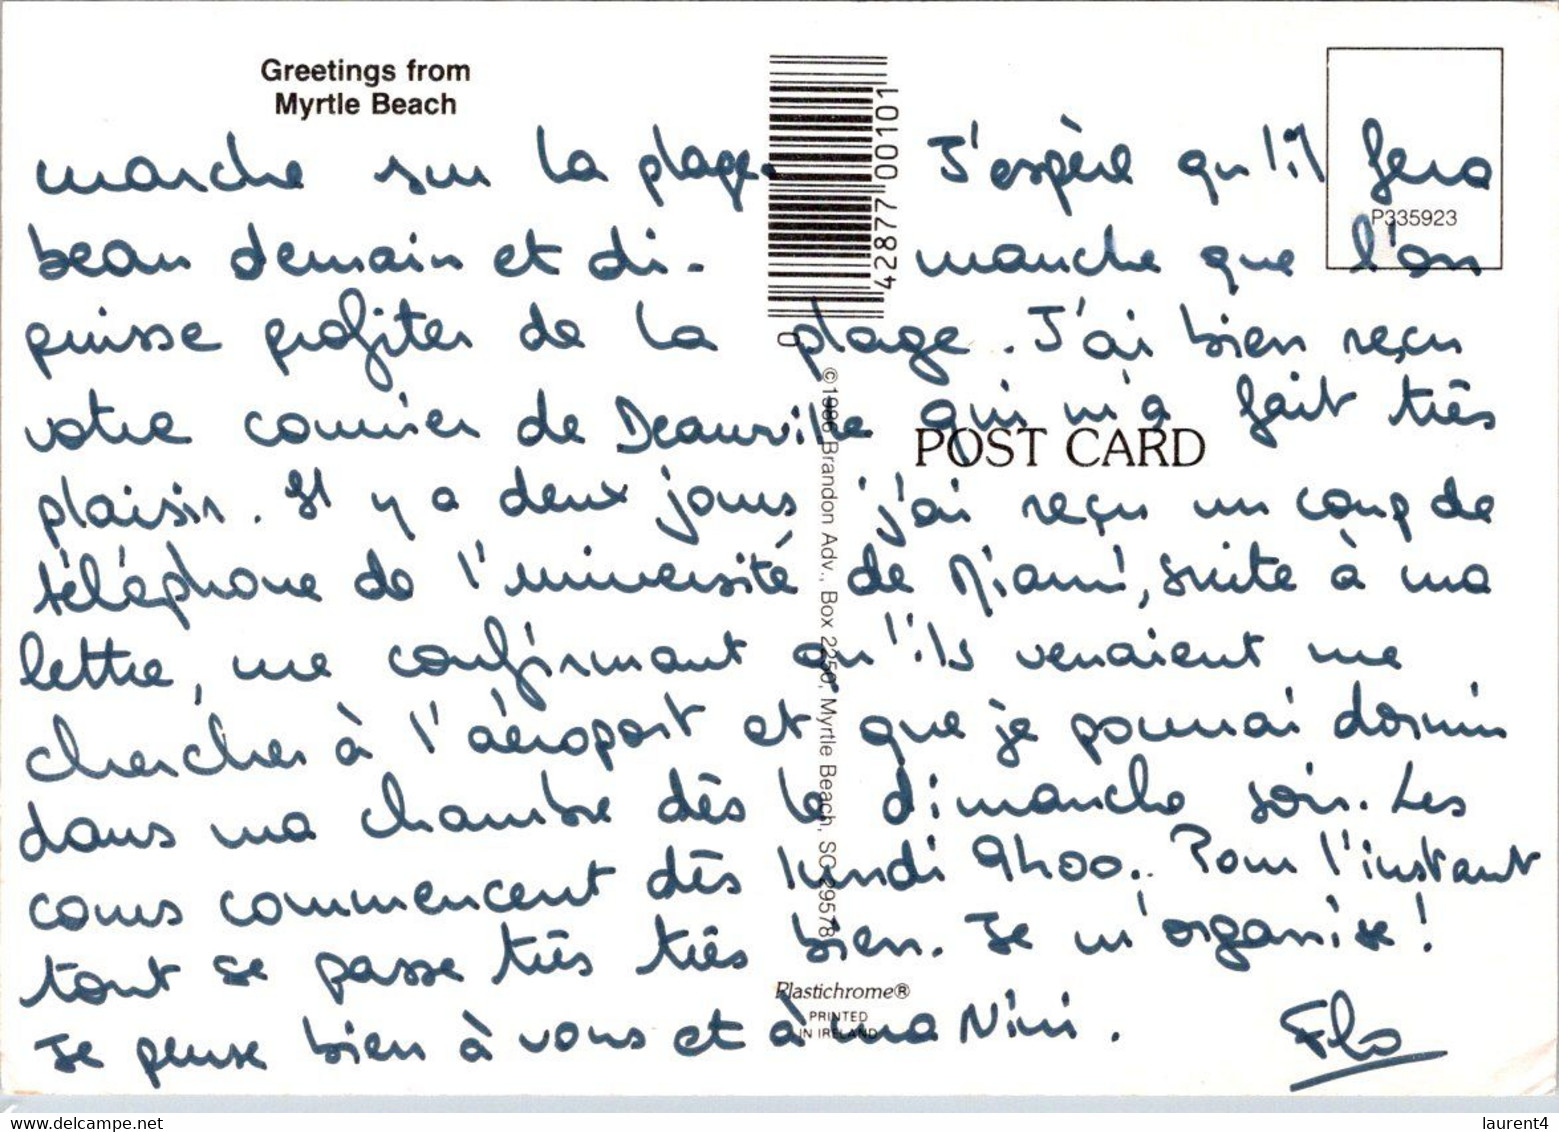 Greetings from
Myrtle Beach
marche sur la plage. J'espère qu'il fera
beau demain et di-manche que l'on
puisse profiter de la plage. J'ai bien reçu
votre courrier de Deauville qui m'a fait très
plaisir. Il y a deux jours j'ai reçu un coup de
téléphone de l'université de Miami, suite à ma
lettre, me confirmant qu'ils venaient me
chercher à l'aéroport et que je pourrai dormir
dans ma chambre dès le dimanche soir. Les
cours commencent dès lundi 9h00. Pour l'instant
tout se passe très très bien. Je m'organise!
Je pense bien à vous et à ma Nini.
Flo
0 42877 00101
P335923
POST CARD
©1986 Brandon Adv., Box 2250, Myrtle Beach, SC 29578
Plastichrome®
PRINTED
IN IRELAND
laurent4